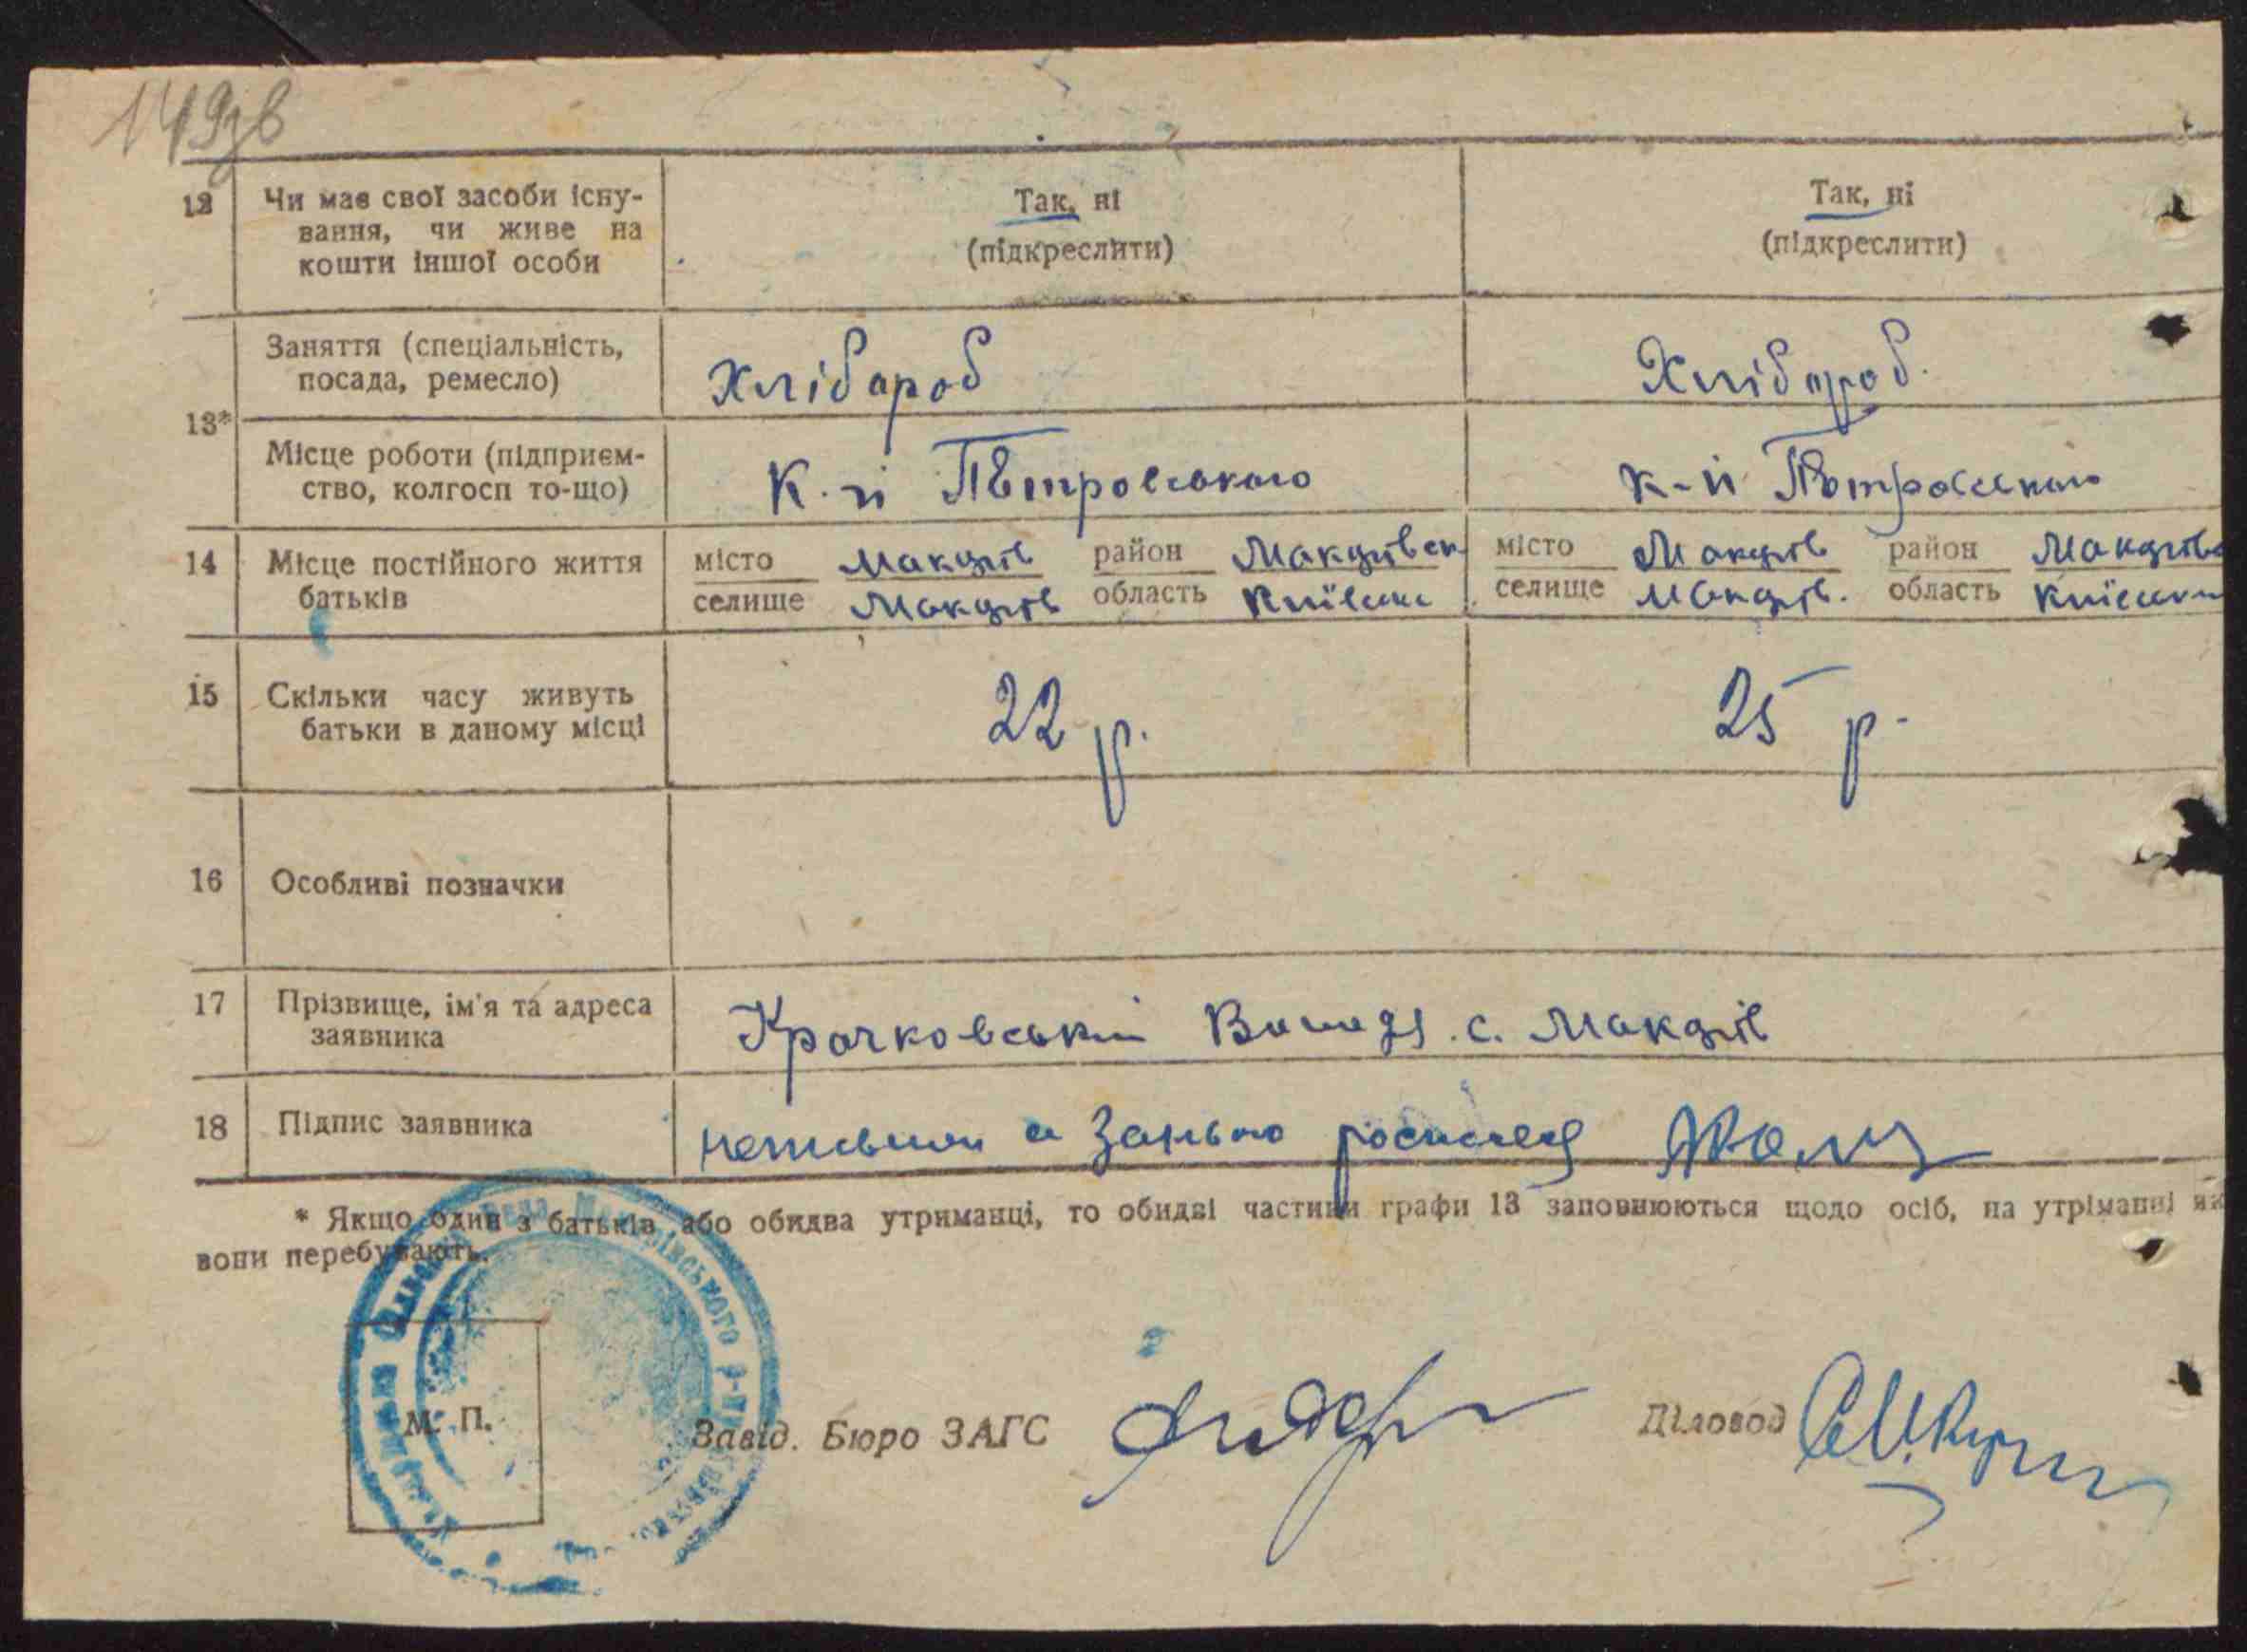 149зв
12 Чи має свої засоби існу-
вання, чи живе на
кошти іншої особи
Так, ні
(підкреслити)
Так, ні
(підкреслити)
13*
Заняття (спеціальність,
посада, ремесло)
Хлібароб
Хлібароб.
Місце роботи (підприєм-
ство, колгосп то-що)
К-п Петровського
К-п Петровського
14 Місце постійного життя
батьків
місто Макарів район Макарівськ
селище Макарів область Київськ
місто Макарів район Макарівс
селище Макарів. область Київськ
15 Скільки часу живуть
батьки в даному місці
22 р.
25 р.
16 Особливі позначки
17 Прізвище, ім'я та адреса
заявника
Крачковський с. Макарів
18 Підпис заявника
а
* Якщо один з батьків або обидва утриманці, то обидві частини графи 13 заповнюються щодо осіб, на утріманні як
вони перебувають.
М. П.
Завід. Бюро ЗАГС
Діловод